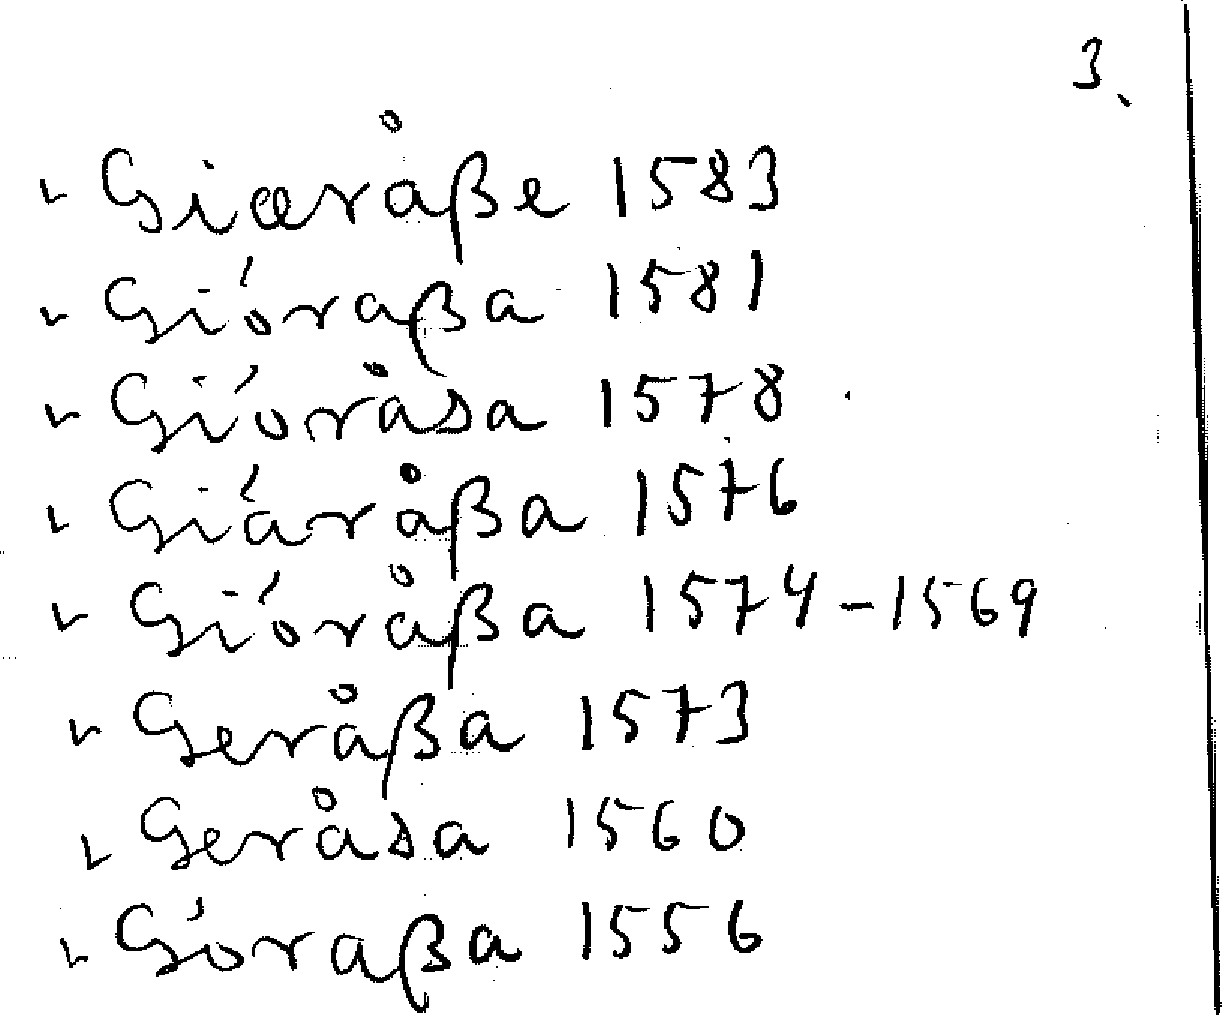 3.
Giæråße 1583
Gióraßa 1581
Gióråsa 1578
Giáråßa 1576
Gióråßa 1574-1569
Geråßa 1573
Geråsa 1560
Góraßa 1556